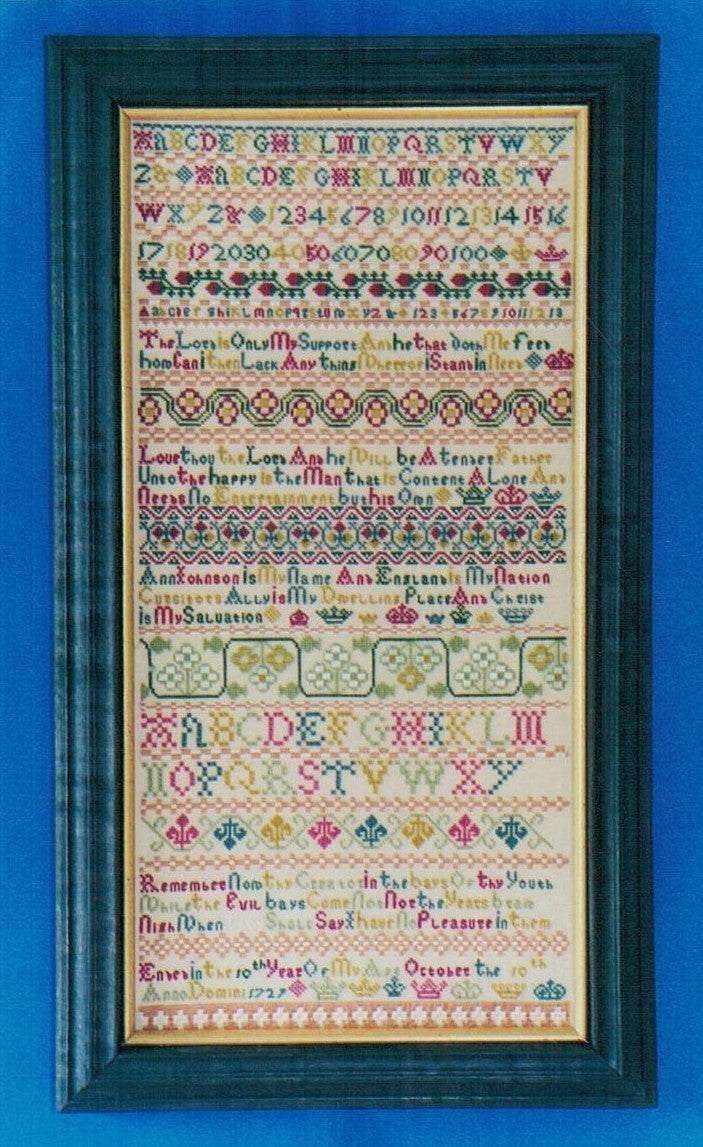 AABCDEFGHIKLMNOPQRSTVWXY
Z& AABCDEFGHIKLMNOPQRSTV
WXYZ& 12345678910111213141516
1718192030405060708090100
AabcdefghiklmnopqrstuwxyZ& 123456789101112 13
The Lord is Only My Support And he that doth Me feed
how Can i then Lack Any thing Whereof i Stand in Need
Love thou the Lord And he Will be A tender Father
Unto the happy is the Man that is Content A Lone And
Needs No Entertainment but his Own
Ann Johnson is My Name And England is My Nation
Cursitors Ally is My Dwelling Place And Christ
is My Salvation
AABCDEFGHIKLM
NOPQRSTVWXY
Remember Now thy Creator in the days Of thy Youth
While the Evil days Come Not Nor the Years draw
Nigh When Shalt Say I have No Pleasure in them
Ended in the 10th Year Of My Age October the 10th
Anno Domini 1729